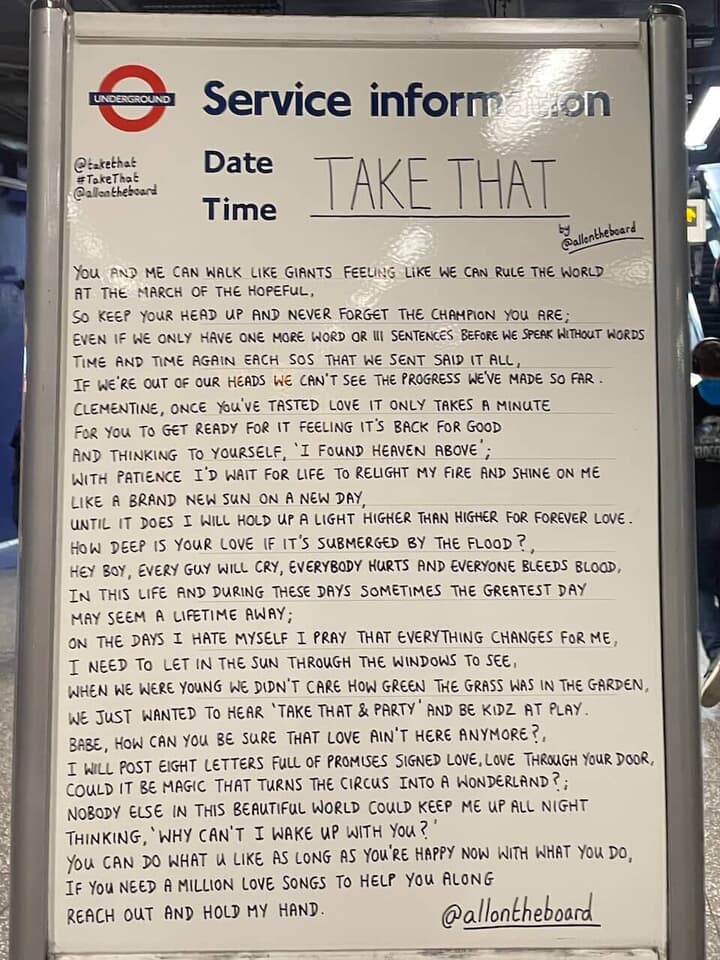 UNDERGROUND
Service information
@takethat
#TakeThat
@allontheboard
Date
Time
TAKE THAT
by
@allontheboard
YOU AND ME CAN WALK LIKE GIANTS FEELING LIKE WE CAN RULE THE WORLD
AT THE MARCH OF THE HOPEFUL,
SO KEEP YOUR HEAD UP AND NEVER FORGET THE CHAMPION YOU ARE;
EVEN IF WE ONLY HAVE ONE MORE WORD OR III SENTENCES BEFORE WE SPEAK WITHOUT WORDS
TIME AND TIME AGAIN EACH SOS THAT WE SENT SAID IT ALL,
IF WE'RE OUT OF OUR HEADS WE CAN'T SEE THE PROGRESS WE'VE MADE SO FAR.
CLEMENTINE, ONCE YOU'VE TASTED LOVE IT ONLY TAKES A MINUTE
FOR YOU TO GET READY FOR IT FEELING IT'S BACK FOR GOOD
AND THINKING TO YOURSELF, 'I FOUND HEAVEN ABOVE';
WITH PATIENCE I'D WAIT FOR LIFE TO RELIGHT MY FIRE AND SHINE ON ME
LIKE A BRAND NEW SUN ON A NEW DAY,
UNTIL IT DOES I WILL HOLD UP A LIGHT HIGHER THAN HIGHER FOR FOREVER LOVE.
HOW DEEP IS YOUR LOVE IF IT'S SUBMERGED BY THE FLOOD?,
HEY BOY, EVERY GUY WILL CRY, EVERYBODY HURTS AND EVERYONE BLEEDS BLOOD,
IN THIS LIFE AND DURING THESE DAYS SOMETIMES THE GREATEST DAY
MAY SEEM A LIFETIME AWAY;
ON THE DAYS I HATE MYSELF I PRAY THAT EVERYTHING CHANGES FOR ME,
I NEED TO LET IN THE SUN THROUGH THE WINDOWS TO SEE,
WHEN WE WERE YOUNG WE DIDN'T CARE HOW GREEN THE GRASS WAS IN THE GARDEN,
WE JUST WANTED TO HEAR 'TAKE THAT & PARTY' AND BE KIDZ AT PLAY.
BABE, HOW CAN YOU BE SURE THAT LOVE AIN'T HERE ANYMORE?,
I WILL POST EIGHT LETTERS FULL OF PROMISES SIGNED LOVE, LOVE THROUGH YOUR DOOR,
COULD IT BE MAGIC THAT TURNS THE CIRCUS INTO A WONDERLAND?;
NOBODY ELSE IN THIS BEAUTIFUL WORLD COULD KEEP ME UP ALL NIGHT
THINKING, 'WHY CAN'T I WAKE UP WITH YOU?'
YOU CAN DO WHAT U LIKE AS LONG AS YOU'RE HAPPY NOW WITH WHAT YOU DO,
IF YOU NEED A MILLION LOVE SONGS TO HELP YOU ALONG
REACH OUT AND HOLD MY HAND.
@allontheboard